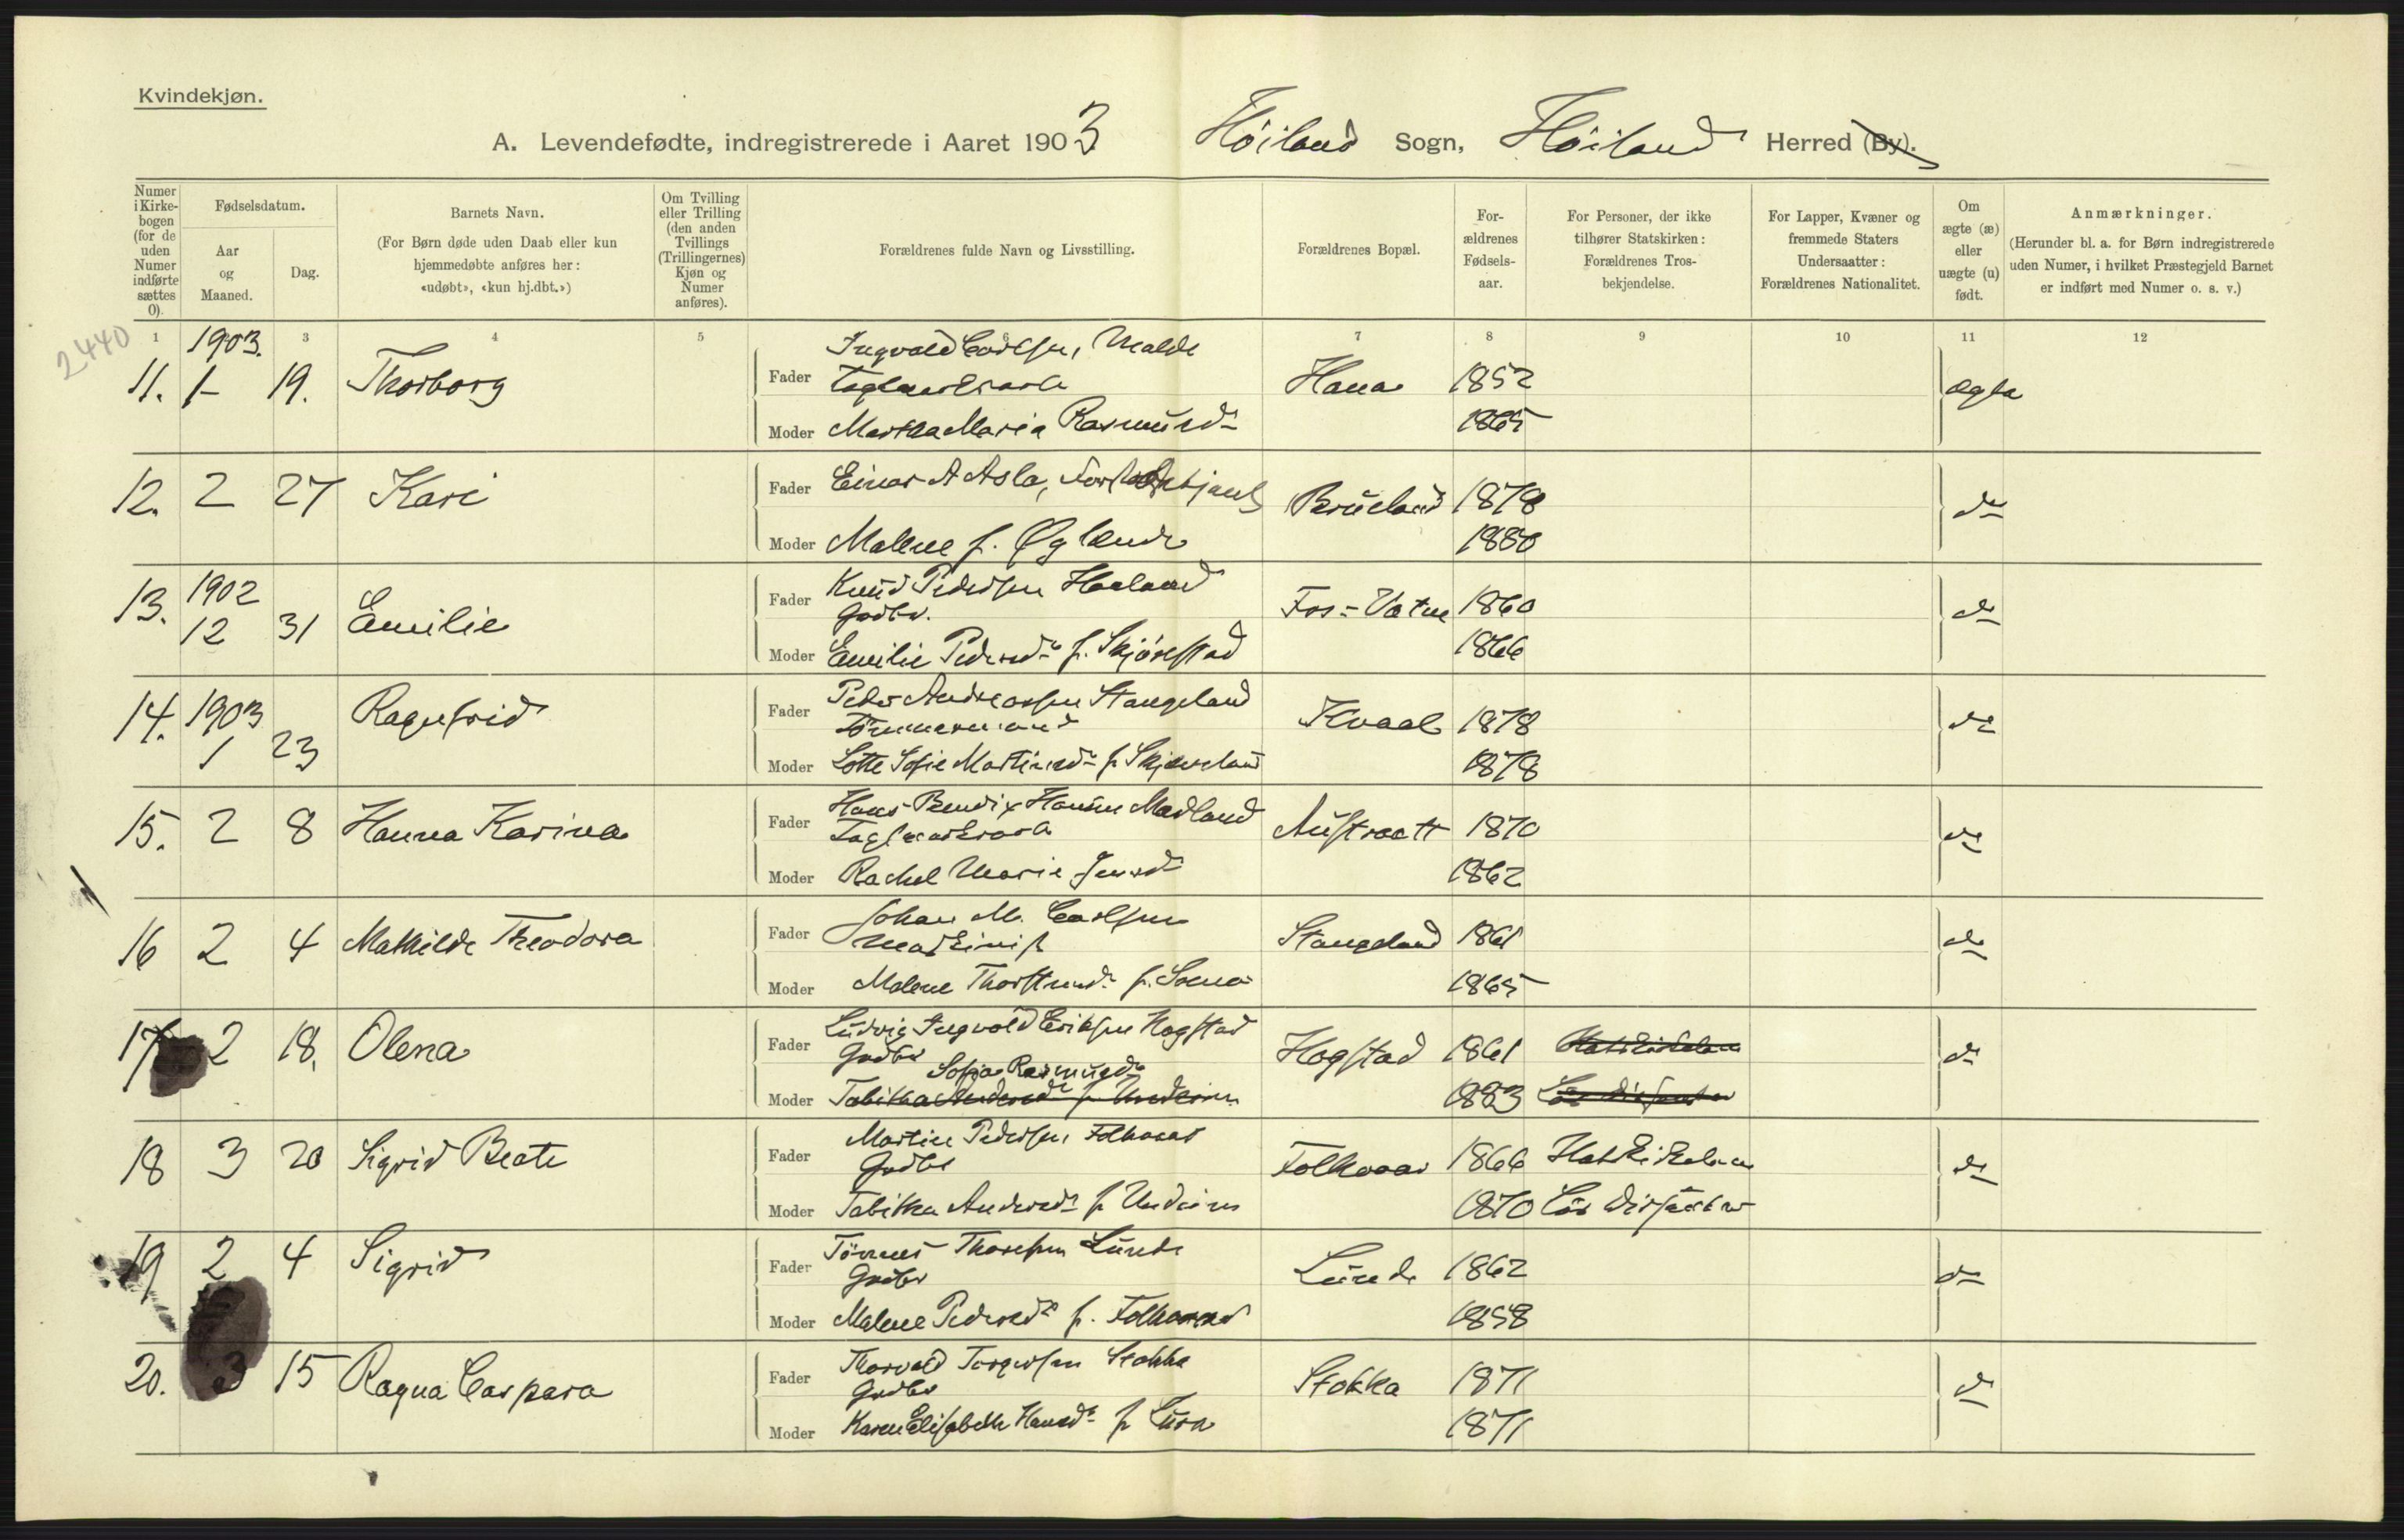 Kvindekjøn.
A. Levendefødte, indregistrerede i Aaret 1903 Höiland Sogn, Höiland Herred (By).
Numer i Kirkebogen (for de uden Numer indførte sættes 0).
Fødselsdatum.
Aar og Maaned.
Dag.
Barnets Navn.
(For Børn døde uden Daab eller kun hjemmedøbte anføres her: «udøbt», «kun hj.dbt.»)
Om Tvilling eller Trilling (den anden Tvillings (Trillingernes) Kjøn og Numer anføres).
Forældrenes fulde Navn og Livsstilling.
Forældrenes Bopæl.
Forældrenes Fødselsaar.
For Personer, der ikke tilhører Statskirken: Forældrenes Trosbekjendelse.
For Lapper, Kvæner og fremmede Staters Undersaatter: Forældrenes Nationalitet.
Om ægte (æ) eller uægte (u) født.
Anmærkninger.
(Herunder bl. a. for Børn indregistrerede uden Numer, i hvilket Præstegjeld Barnet er indført med Numer o. s. v.)
2440
1 3 4 5 6 7 8 9 10 11 12
1903.
11. 1 19. Thorborg
Fader Ingvald Carlsen, Malde
Hana 1852 ægte
Moder Martha Maria Rasmusd. 1865
12. 2 27 Kari
Fader Einar A Asla,
Brueland 1878 do
Moder Malene f. Øglænd 1880
13. 1902 12 31 Emilie
Fader Knud Pedersen Haaland
Gaardbr.
Fos-Vatne 1860 do
Moder Emilie Pedersd. f. Skjörestad 1866
14. 1903 1 23 Ragnfrid
Fader Peder Andreassen Stangeland
Tömmermand
Kvaal 1878 do
Moder Lotte Sofie Martinsd. f. Skjæveland 1878
15. 2 8 Hanna Karina
Fader Hans Bendix Hansen Madland
Austraatt 1870 do
Moder Rachel Marie Jensd. 1862
16 2 4 Mathilde Theodora
Fader Johan M. Carlsen
Maskinist
Stangeland 1861 do
Moder Malene Thorstensd. f. Soma 1865
17 2 18. Olena
Fader Ludvig Ingvald Eriksen Hogstad
Gaardbr
Hogstad 1861 do
Sofia Rasmusd.
Moder Tabitha Andersd. f. Undeim 1883
18 3 20 Sigrid Beate
Fader Martin Pedersen Folkvord
Gaardbr
Folkvord 1866 Statskirken do
Moder Tabitha Andersd. f. Undeim 1870 Luth. Dissenter
19 2 4 Sigrid
Fader Tönnes Thoresen Lunde
Gaardbr
Lunde 1862 do
Moder Malene Pedersd. f. Folkvord 1858
20. 3 15 Ragna Caspara
Fader Thorvald Torgersen Stokka
Gaardbr
Stokka 1871 do
Moder Karen Elisabeth Hansd. f. Lura 1871